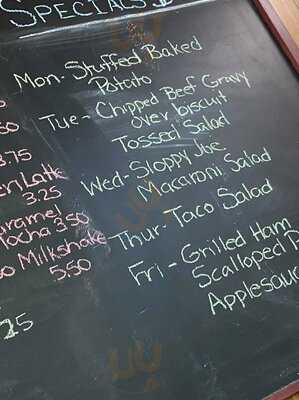 SPECIALS
Mon- Stuffed Baked
Potato
Tue- Chipped Beef Gravy
over biscuit
Tossed Salad
Wed- Sloppy Joe
Macaroni Salad
Thur- Taco Salad
Fri- Grilled Ham
Scalloped
Applesauc
3.75
Latte
3.25
3.50
Milkshake
5.50